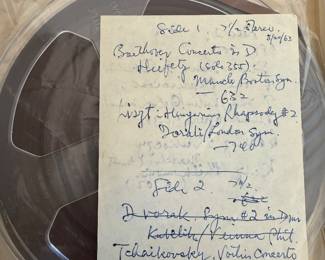 Side 1   7 1/2 Stereo
Beethoven Concerto in D
Heifetz
Munch/Boston Sym.
— 632
Liszt: Hungarian Rhapsody #2
Dorati/London Sym.
— 740
Side 2   7 1/2
Dvorak Sym #2 in D
Kubelik/Vienna Phil.
Tchaikovsky, Violin Concerto